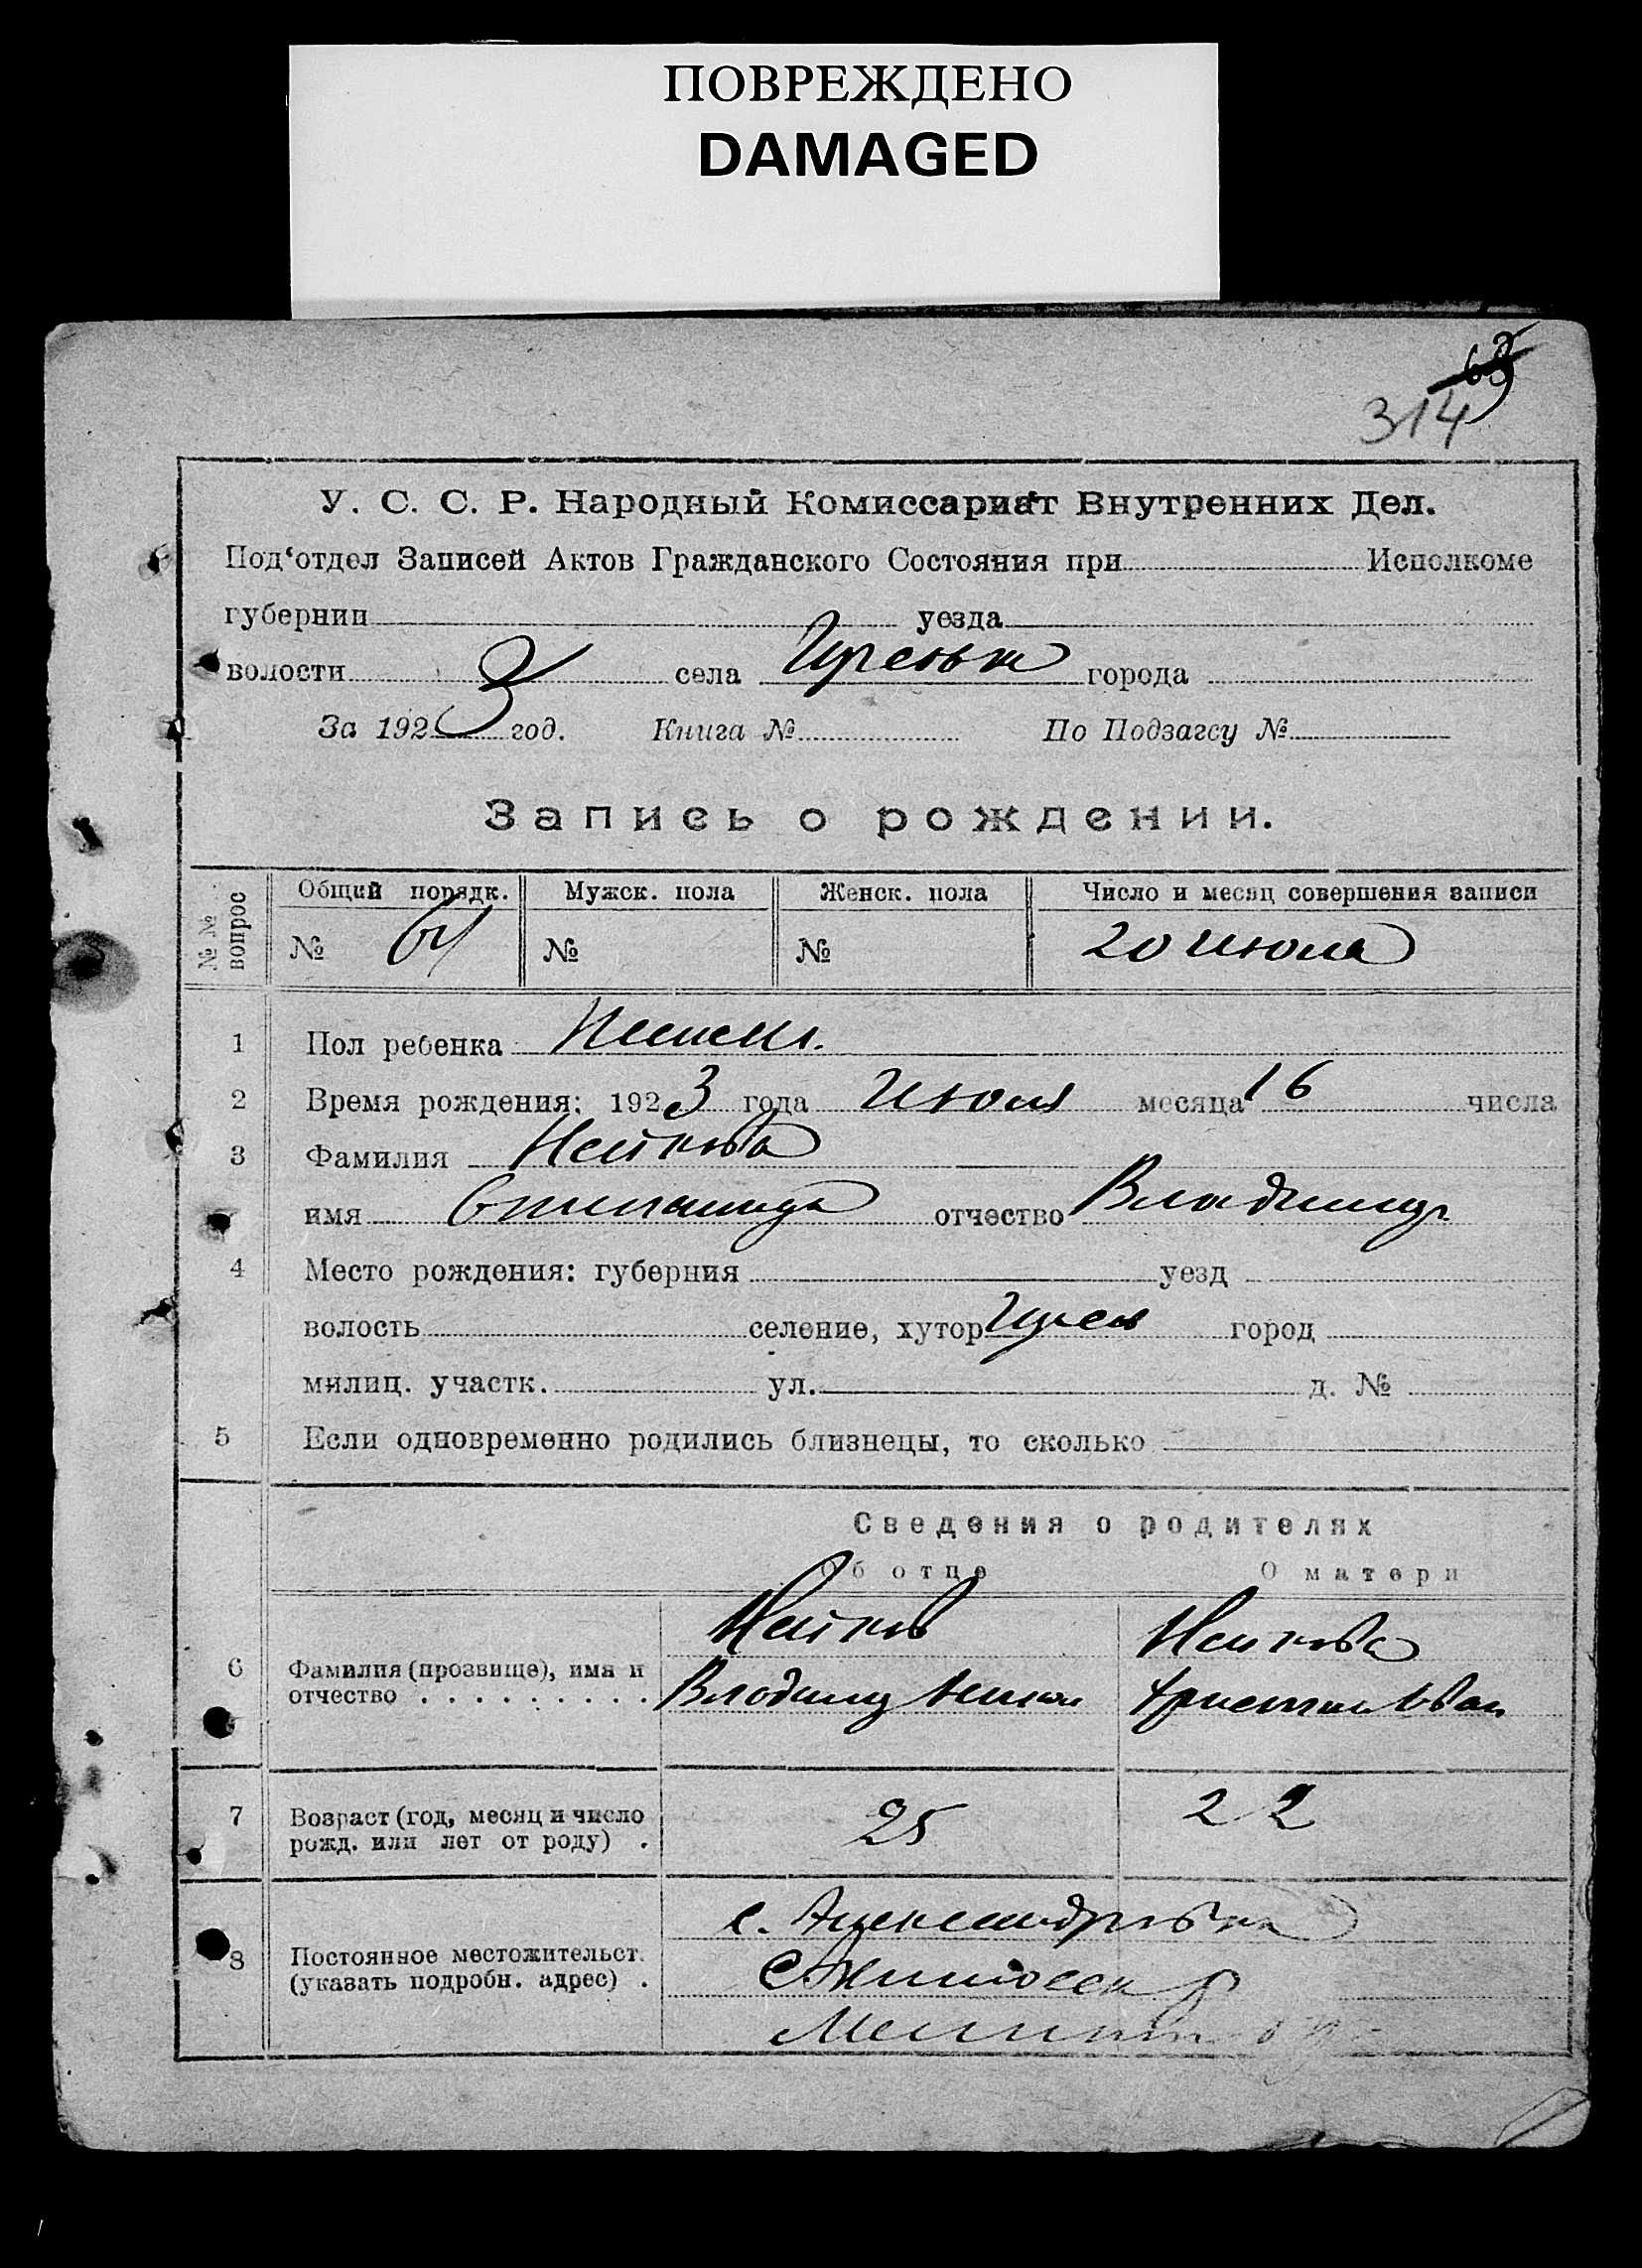 ПОВРЕЖДЕНО
DAMAGED
63
314
У. С. С. Р. Народный Комиссариат Внутренних Дел.
Под‘отдел Записей Актов Гражданского Состояния при Исполкоме
губернии уезда
волости села города
За 1923 год. Книга № По Подзагсу №
Запись о рождении.
№ № вопрос
Общий порядк. Мужск. пола Женск. пола Число и месяц совершения записи
№ 64 № № 20 июля
1 Пол ребенка Женск.
2 Время рождения: 1923 года Июля месяца 16 числа
3 Фамилия Нейкова
имя отчество Владимир
4 Место рождения: губерния уезд
волость селение, хутор город
милиц. участк. ул. д. №
5 Если одновременно родились близнецы, то сколько
Сведения о родителях
Об отце О матери
Нейков Нейкова
6 Фамилия (прозвище), имя и отчество . . . . . . . . . Владимир Христин Иван
7 Возраст (год, месяц и число рожд. или лет от роду) . 25 22
с. Александровка
8 Постоянное местожительст. (указать подробн. адрес) .